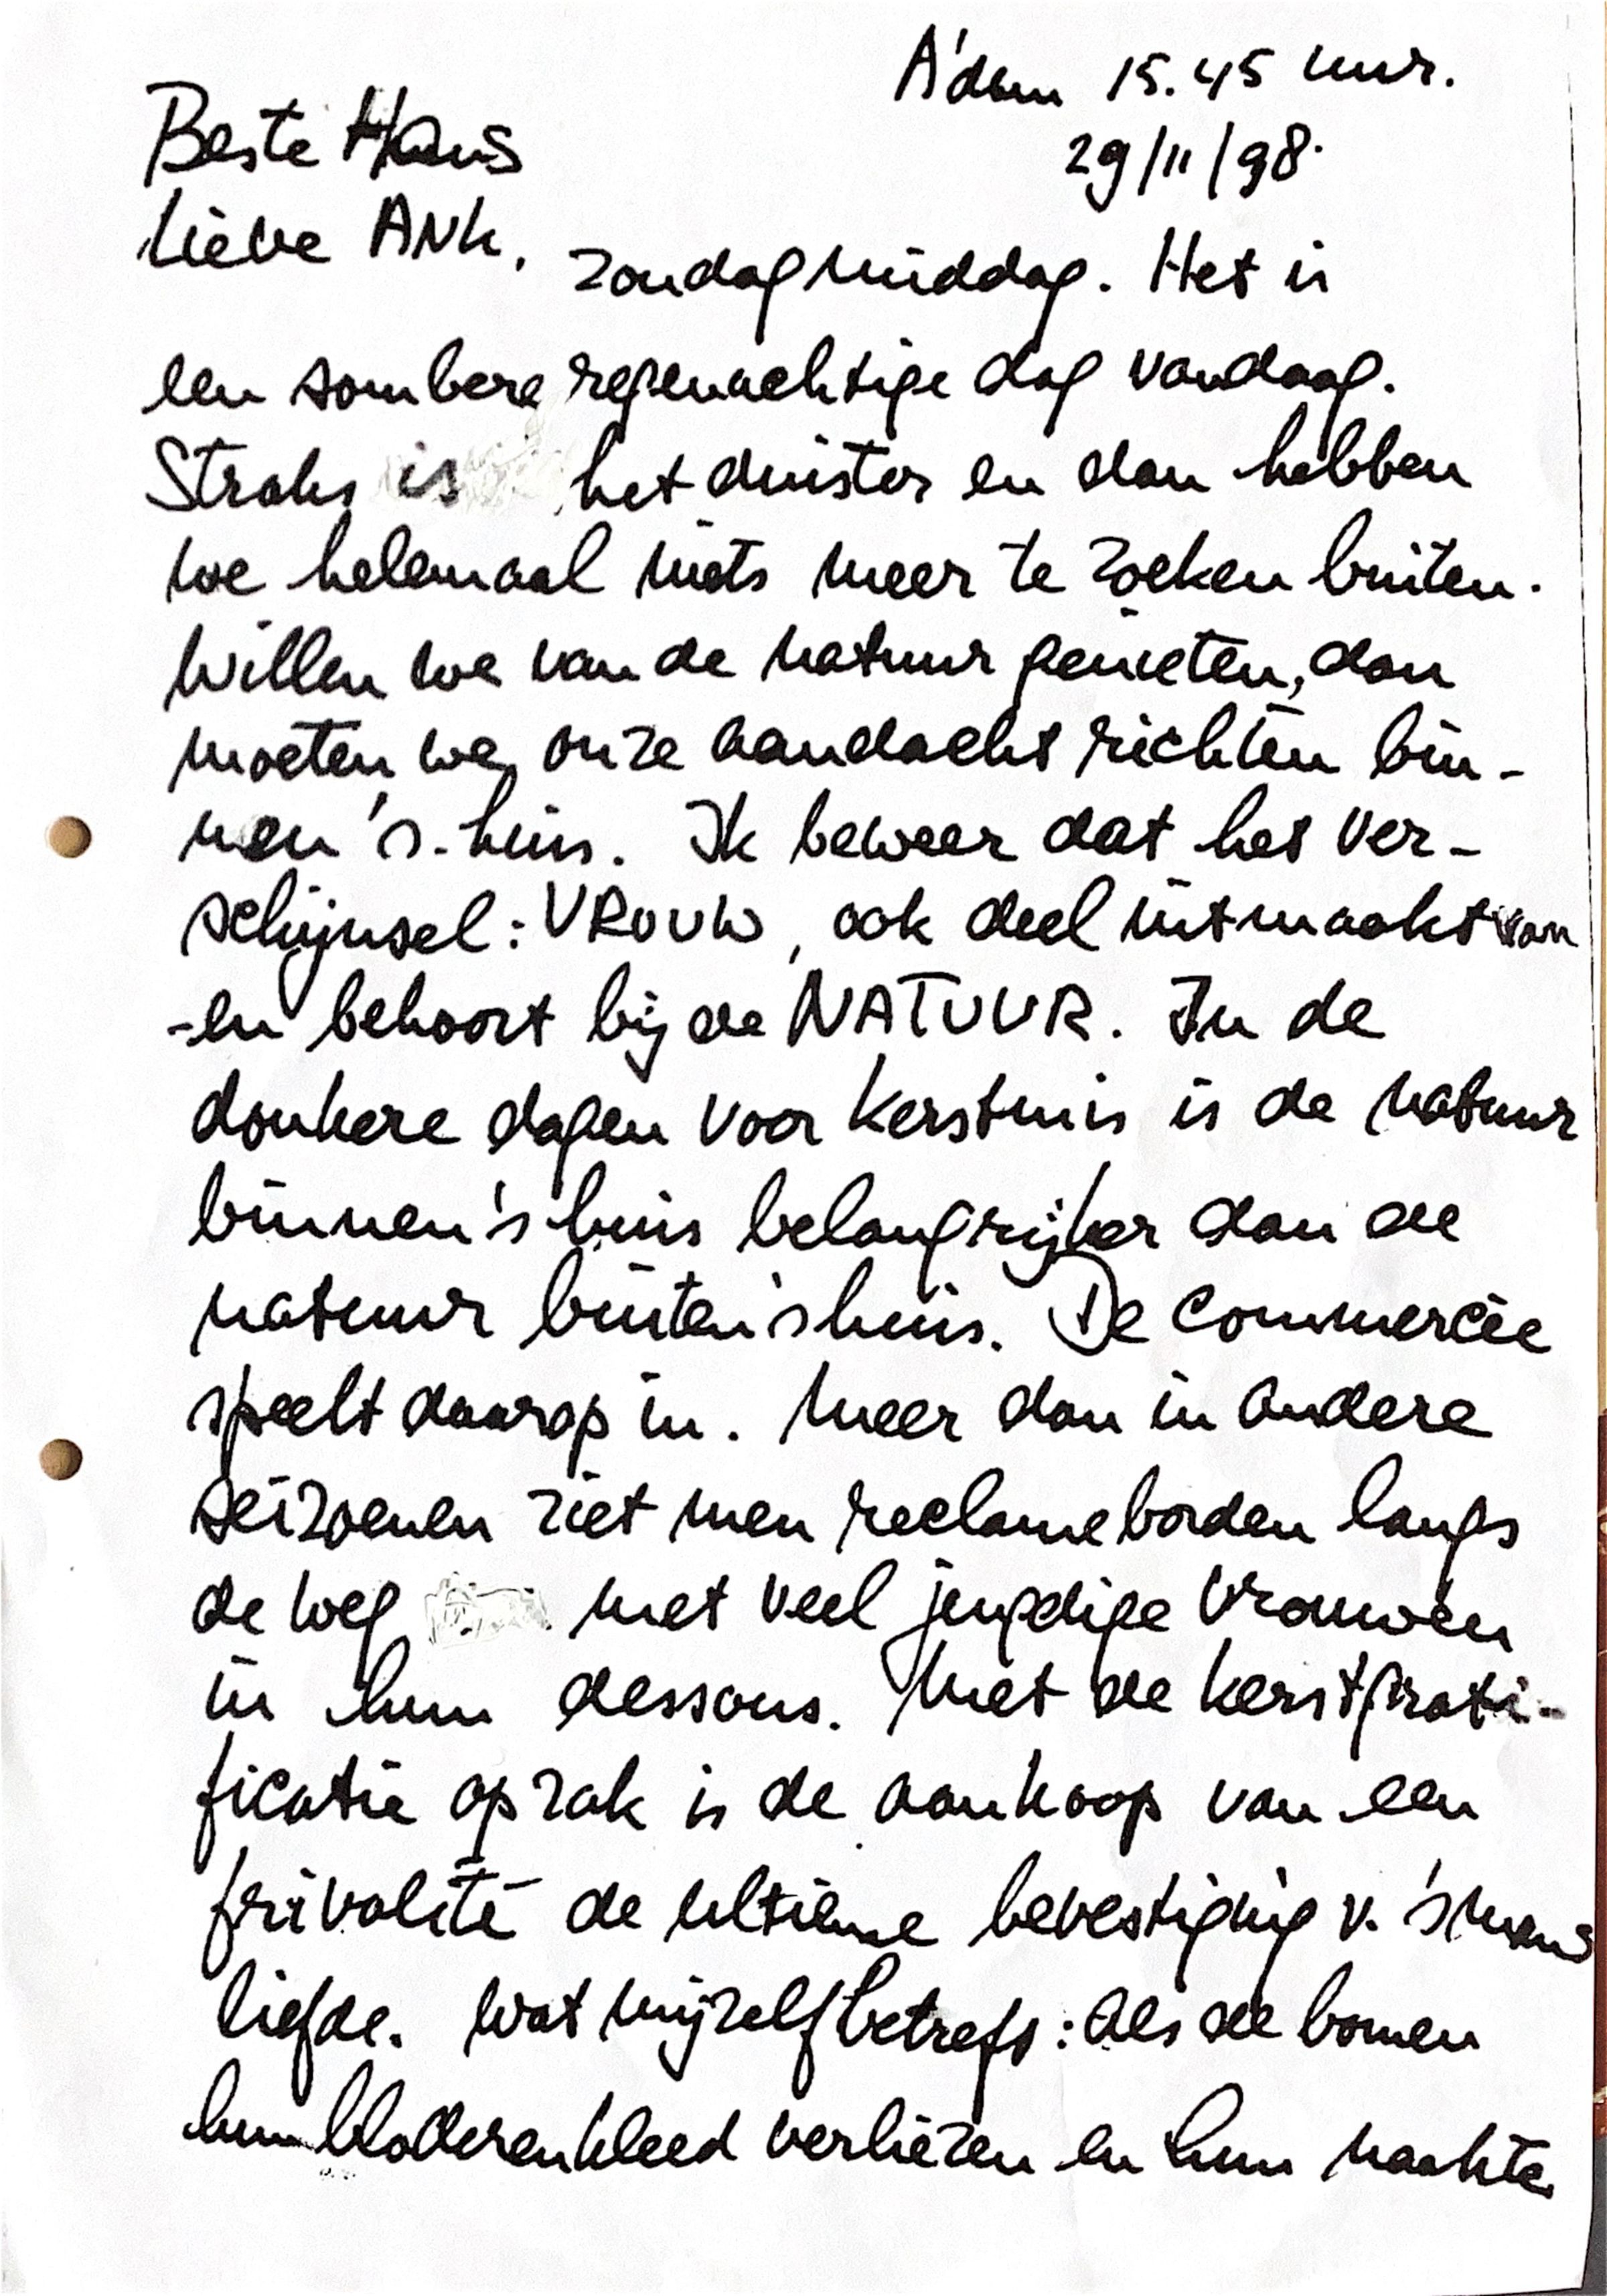 A'dam 15.45 uur.
29/11/98.
Beste Hans
Lieve ANK,
zondagmiddag. Het is
een sombere regenachtige dag vandaag.
Straks is het duister en dan hebben
we helemaal niets meer te zoeken buiten.
Willen we van de natuur genieten, dan
moeten we onze aandacht richten bin-
nen 's-huis. Ik beweer dat het ver-
schijnsel: VROUW, ook deel uitmaakt van
-en behoort bij de NATUUR. In de
donkere dagen voor Kerstmis is de natuur
binnen's huis belangrijker dan de
natuur buiten's huis. De commercie
speelt daarop in. Meer dan in andere
seizoenen ziet men reclameborden langs
de weg met veel jeugdige vrouwen
in hun dessous. Met de kerstgrati-
ficatie op zak is de aankoop van een
frivolité de ultieme bevestiging v. 's mans
liefde. Wat mijzelf betreft: als de bomen
hun bladerenkleed verliezen en hun naakte